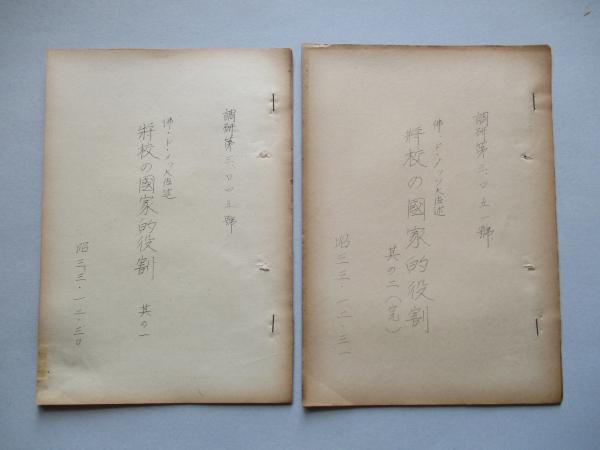 調研第三〇四五號
佛・ド・メッツ大佐述
將校の國家的役割 其の一
昭三三・一二・三〇
調研第三〇五一號
佛・ド・メッツ大佐述
將校の國家的役割
其の二(完)
昭三三・一二・三一